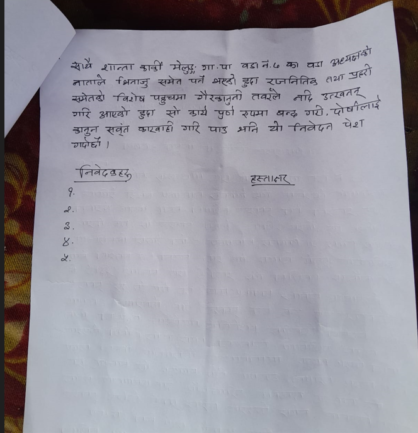 साथै शान्ता कार्की मेलुङ गा.पा वडा नं.७ का वडा अध्यक्षको
नाताले भिनाजु समेत पर्ने भएको हुदा राजनितिक तथा प्रहरी
समेतको विशेष पहुचमा गैरकानुनी तवरले नदि उत्खनन्
गरि आएको हुदा सो कार्य पूर्ण रुपमा बन्द गरी दोषीलाई
कानुन सवंत कारवाही गरि पाउ भनि यो निवेदन पेश
गर्दछौं।
निवेदकहरु हस्ताक्षर
१.
२.
३.
४.
५.